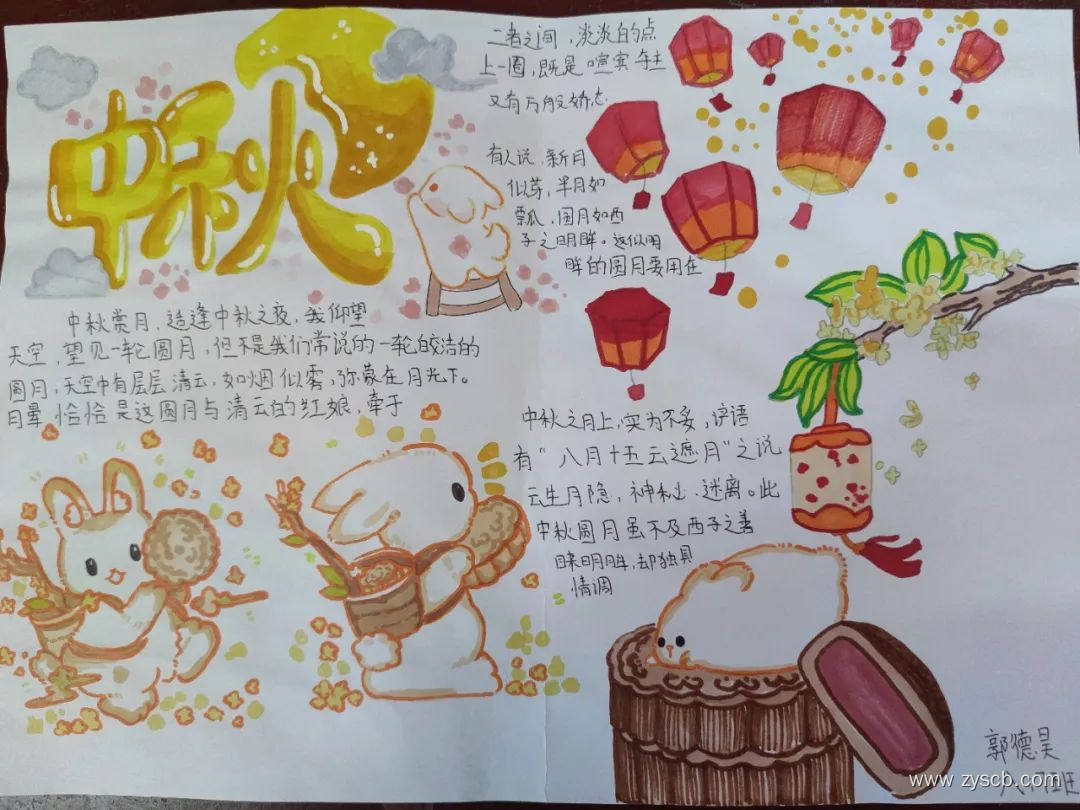 中秋
中秋赏月，适逢中秋之夜，我仰望
天空，望见一轮圆月，但不是我们常说的一轮皎洁的
圆月，天空中有层层清云，如烟似雾，弥蒙在月光下。
月晕恰恰是这圆月与清云的红娘，牵于
二者之间，淡淡的点
上一圈，既是喧宾夺主
又有万般娇态
有人说，新月
似芽，半月如
瓢瓜，圆月如西
子之明眸。这似明
眸的圆月要用在
中秋之月上，实为不多，谚语
有“八月十五云遮月”之说
云生月隐，神秘迷离。此
中秋圆月虽不及西子之善
睐明眸，却独具
情调
郭德昊
班
www.zyscb.com